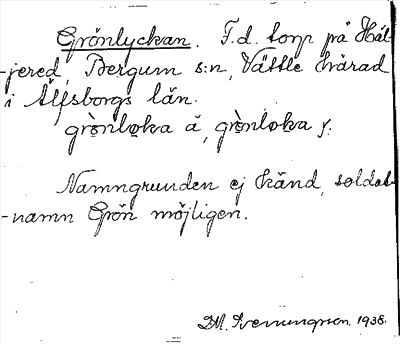 Grönlyckan. F.d. torp på Häl-
-jered, Bergum s:n, Vättle härad
i Älfsborgs län.
grònloka ä, grònloka f.
Namngrunden ej känd, soldat-
-namn Grön möjligen.
1938.